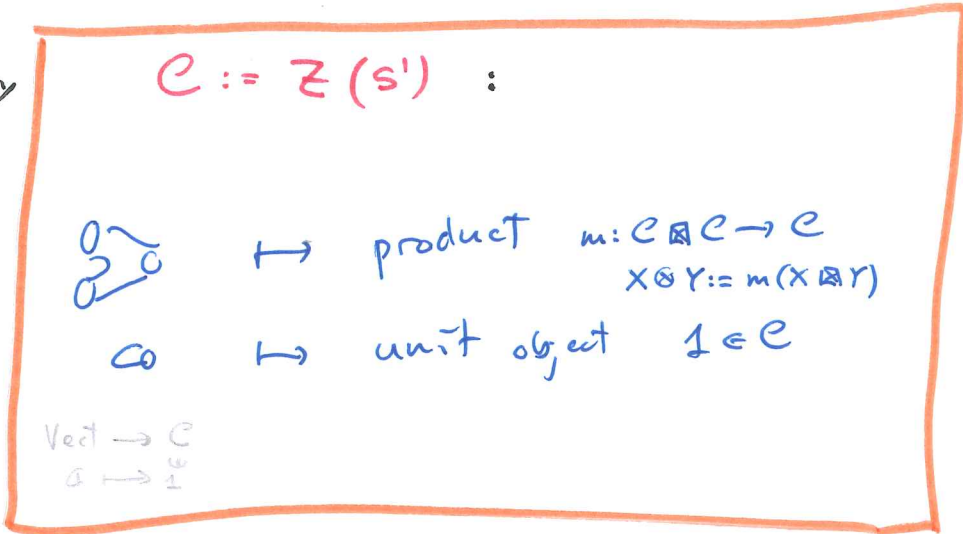 C := Z(S¹) :
↦ product m: C ⊠ C → C
X ⊗ Y := m(X ⊠ Y)
↦ unit object 1 ∈ C
Vect → C
↦ 1